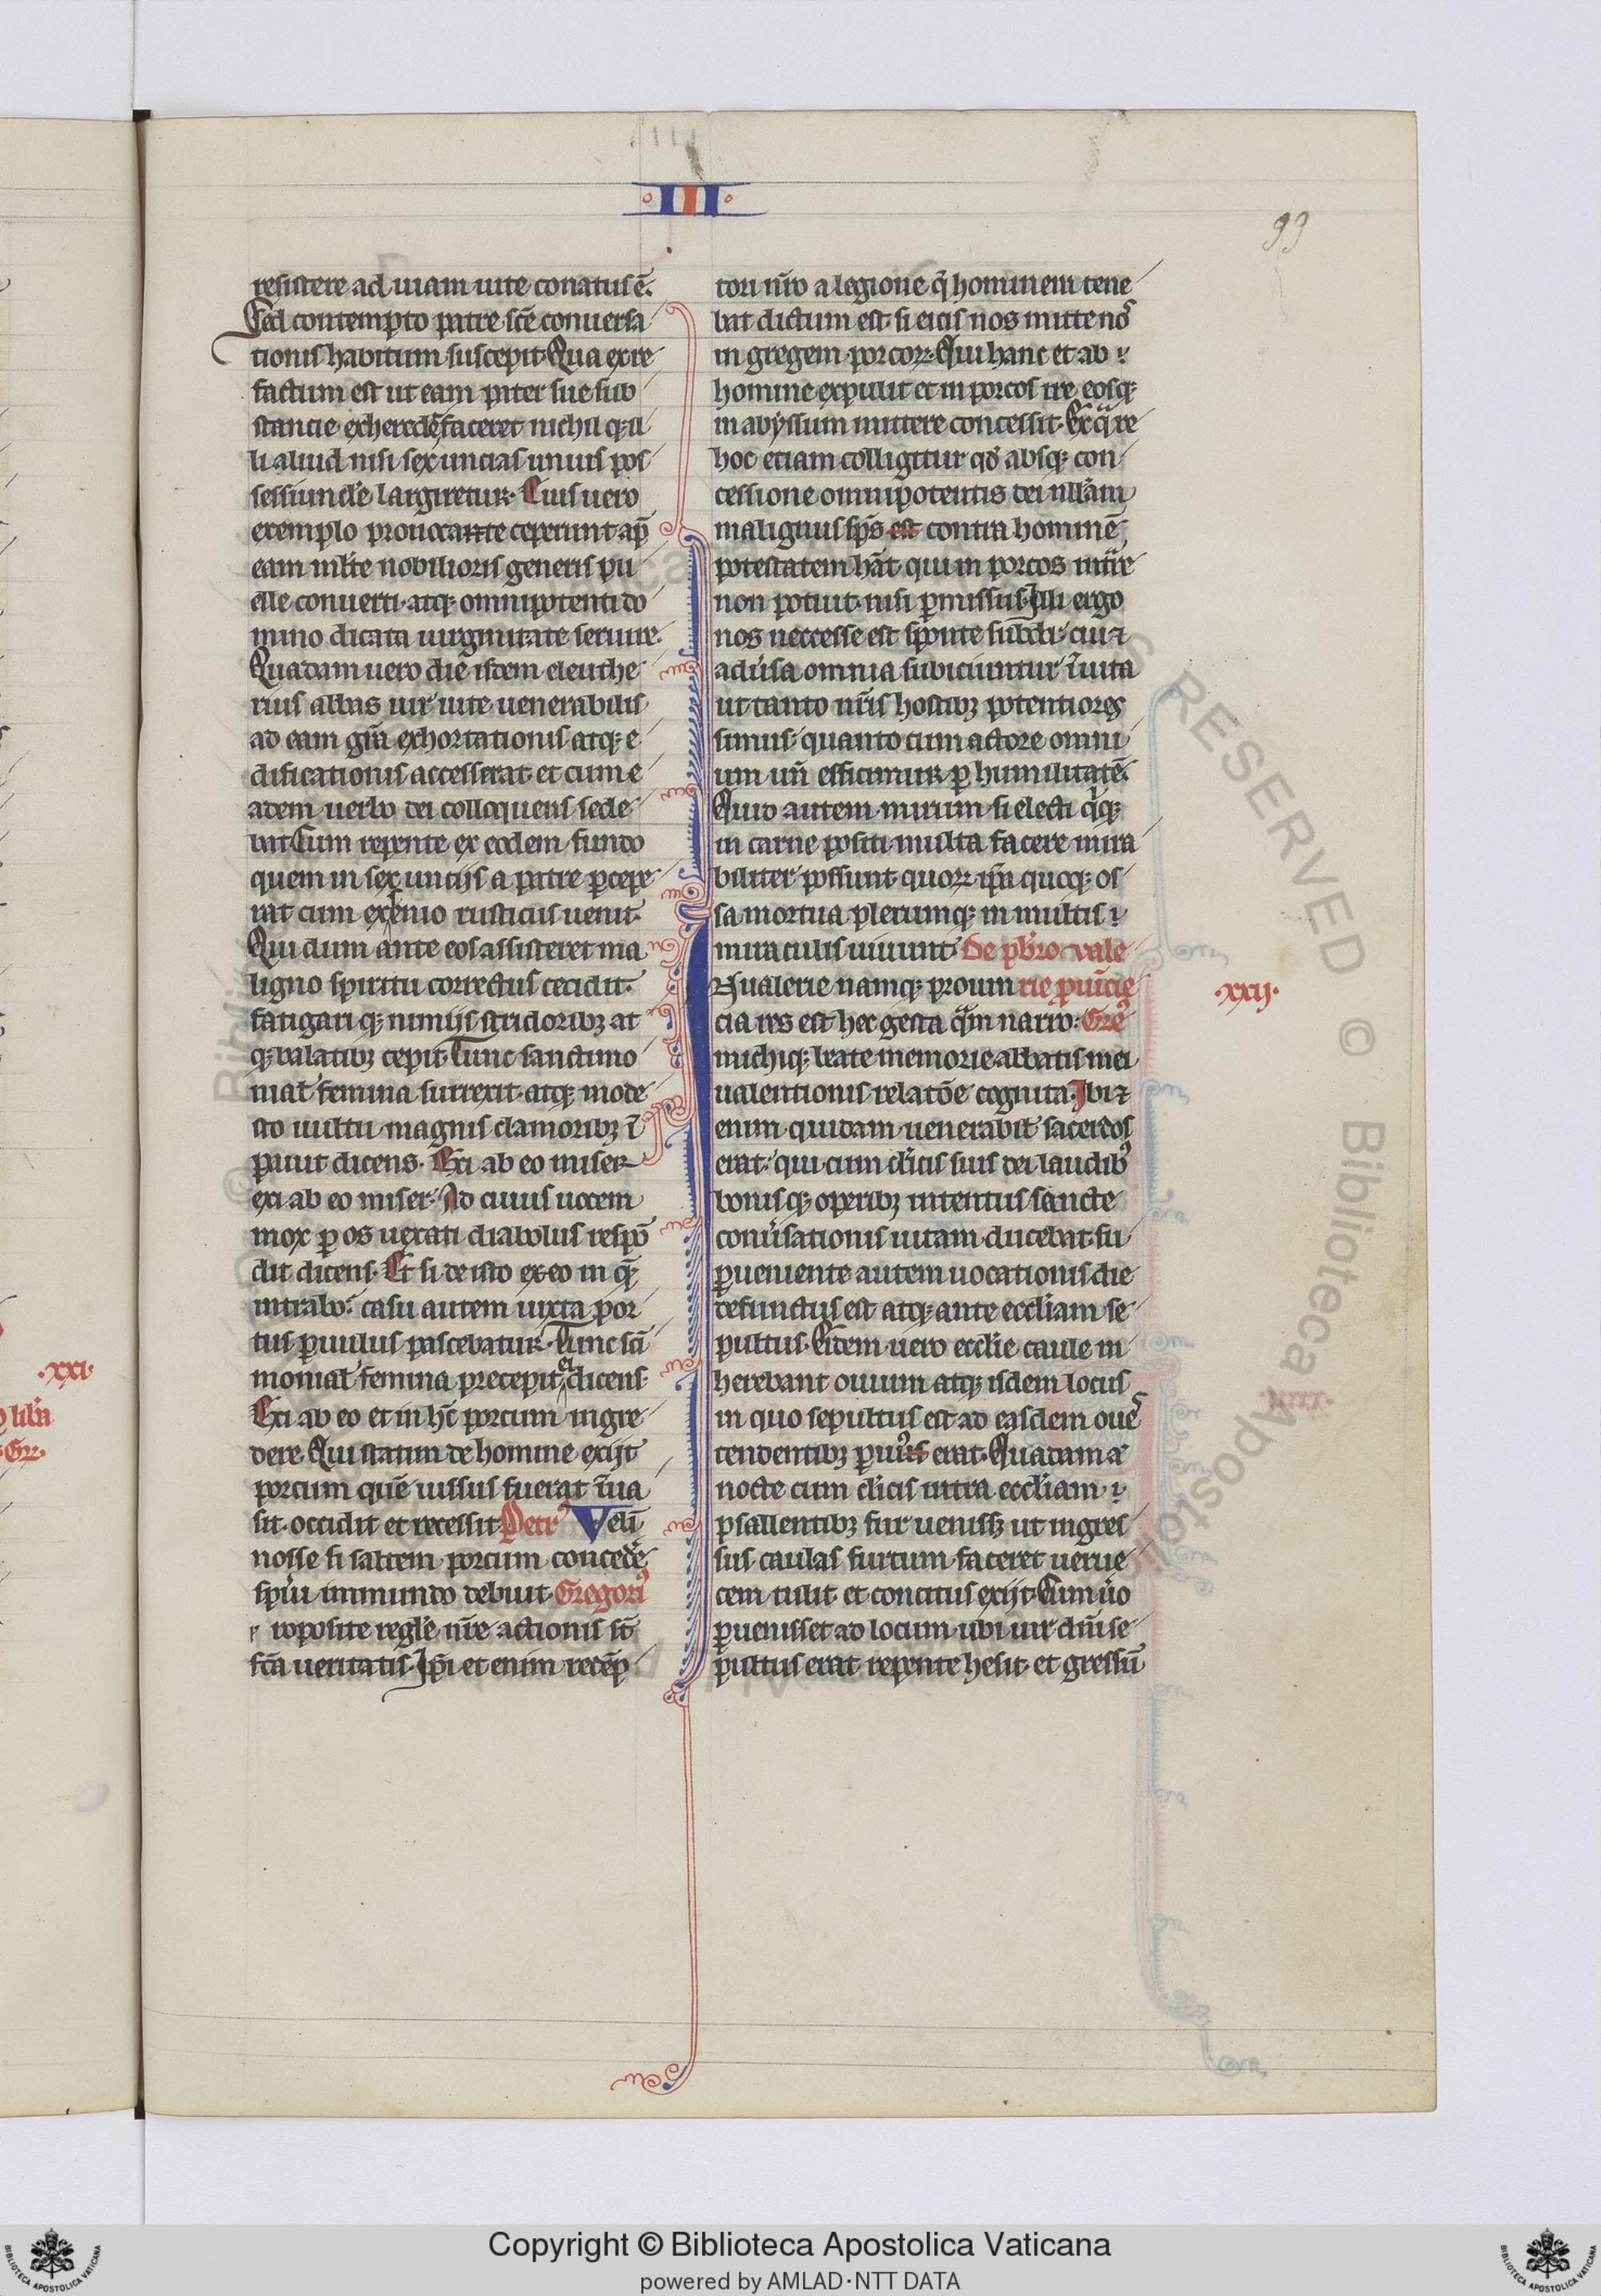 III
99
resistere ad uiam uite conatus ē.
Sed contempto patre scē conuersa
tionis habitum suscepit. Qua ex re
factum est ut eam pater sue sub
stantie exheredē faceret nichil qꝫ il
li aliud nisi sex uncias unius pos
sessiuncle largiretur. Cuius uero
exemplo prouocante ceperunt ap̄
eam multe nobilioris generis pu
elle conuerti. atqꝫ omnipotenti do
mino dicata uirginitate seruire.
Quadam uero die isdem eleuthe
rius abbas uir uite uenerabilis
ad eam gr̄a exhortationis atqꝫ e
dificationis accesserat et cum e
adem uerbo dei colloquens sede
bat Cum repente ex eodem fundo
quem in sex uncijs a patre ꝑcepe
rat cum exenio rusticus uenit.
Qui dum ante eos assisteret ma
ligno spiritu correctus cecidit.
fatigari qꝫ nimijs stridoribꝫ at
qꝫ balatibꝫ cepit. Tunc sanctimo
nial' femina surrexit. atqꝫ irato
uultu magnis clamoribꝫ ī
ꝑauit dicens. Exi ab eo miser
exi ab eo miser. Ad cuius uocem
mox ꝑ os uexati diabolus respō
dit dicens. Et si de isto exeo in quē
intrabo? casu autem iuxta por
cus ꝑuulus pascebatur. Tunc sc̄i
monial' femina precepit ei dicens
Exi ab eo et in hc̄ porcum ingre
dere. Qui statim de homine exijt
porcum quē iussus fuerat īua
sit. occidit et recessit. Petr' Velī
nosse si saltem porcum concedē
sp̄ui immundo debuit. Gregori'
roposite regle nr̄e actionis st̄
fc̄a ueritatis. Ip̄i et enim redēp
tori nr̄o a legione q̄ hominem tene
bat dictum est. si eicis nos mitte nos
in gregem porcorꝝ. Qui hanc et ab
homine expulit et in porcos ire eosqꝫ
in abyssum mittere concessit. Ex qua re
hoc etiam colligitur qd' absqꝫ con
cessione omnipotentis dei nullam
malignus sp̄s est contra hominē
potestatem hāt qui in porcos int̄re
non potuit. nisi ꝑmissus. Illi ergo
nos neccesse est sponte subdi. cui ⁊
aduersa omnia subiciuntur īuita
ut tanto nr̄is hostibꝫ potentiores
simus. quanto cum actore omni
um un̄ efficimur ꝑ humilitatē.
Quid autem mirum si electi q̇qꝫ
in carne positi multa facere mira
biliter possunt quorꝝ ip̄a quoqꝫ os
sa mortua plerumqꝫ in multis
miraculis uiuunt. De pb̄ro vale
Jn ualerie namqꝫ prouin rie ꝓuīcie
.xxij.
cia res est hec gesta quā narro: Gre'
michiqꝫ beate memorie abbatis mei
ualentionis relatōe cognita. Ibi ⁊
enim quidam uenerabil' sacerdos
erat. qui cum cl'icis suis dei laudib'
bonisqꝫ operibꝫ intentus sancte
conu'sationis uitam ducebat. su
ꝑueniente autem uocationis die
defunctus est atqꝫ ante eccl'iam se
pultus. Eidem uero eccl'ie caule in
herebant ouium atqꝫ isdem locus
in quo sepultus est ad easdem oues
tendentibꝫ ꝑuius erat. Quadam aͤ
nocte cum cl'icis intra eccl'iam
psallentibꝫ fur uenissꝫ ut ingres
sus caulas furtum faceret uerue
cem tulit et concitus exijt. Cum u'o
ꝑuenisset ad locum ubi uir dn̄i se
pultus erat repente hesit. et gressū
.xxi.
Copyright © Biblioteca Apostolica Vaticana
powered by AMLAD·NTT DATA